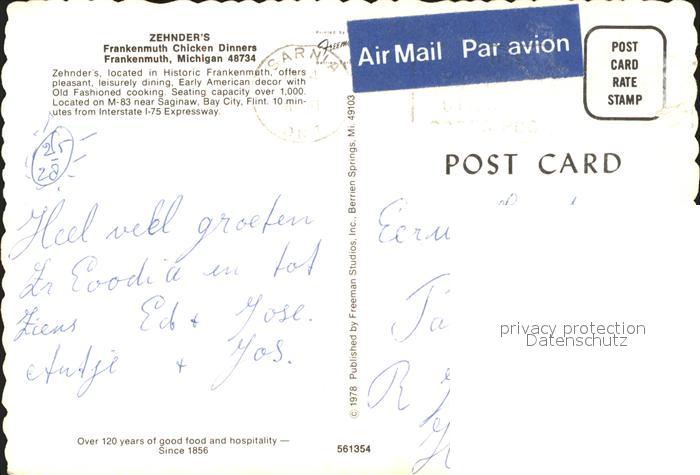 ZEHNDER'S
Frankenmuth Chicken Dinners
Frankenmuth, Michigan 48734
Zehnder's, located in Historic Frankenmuth, offers
pleasant, leisurely dining, Early American decor with
Old Fashioned cooking. Seating capacity over 1,000.
Located on M-83 near Saginaw, Bay City, Flint. 10 min-
utes from Interstate I-75 Expressway.
Heel veel groeten
Zr Eoodia en tot
Ziens Ed + Jose.
Antje + Jos.
Over 120 years of good food and hospitality —
Since 1856
561354
© 1978 Published by Freeman Studios, Inc., Berrien Springs, Mi. 49103
Printed by
SARNIA
ONT
Air Mail Par avion
POST
CARD
RATE
STAMP
POST CARD
privacy protection
Datenschutz